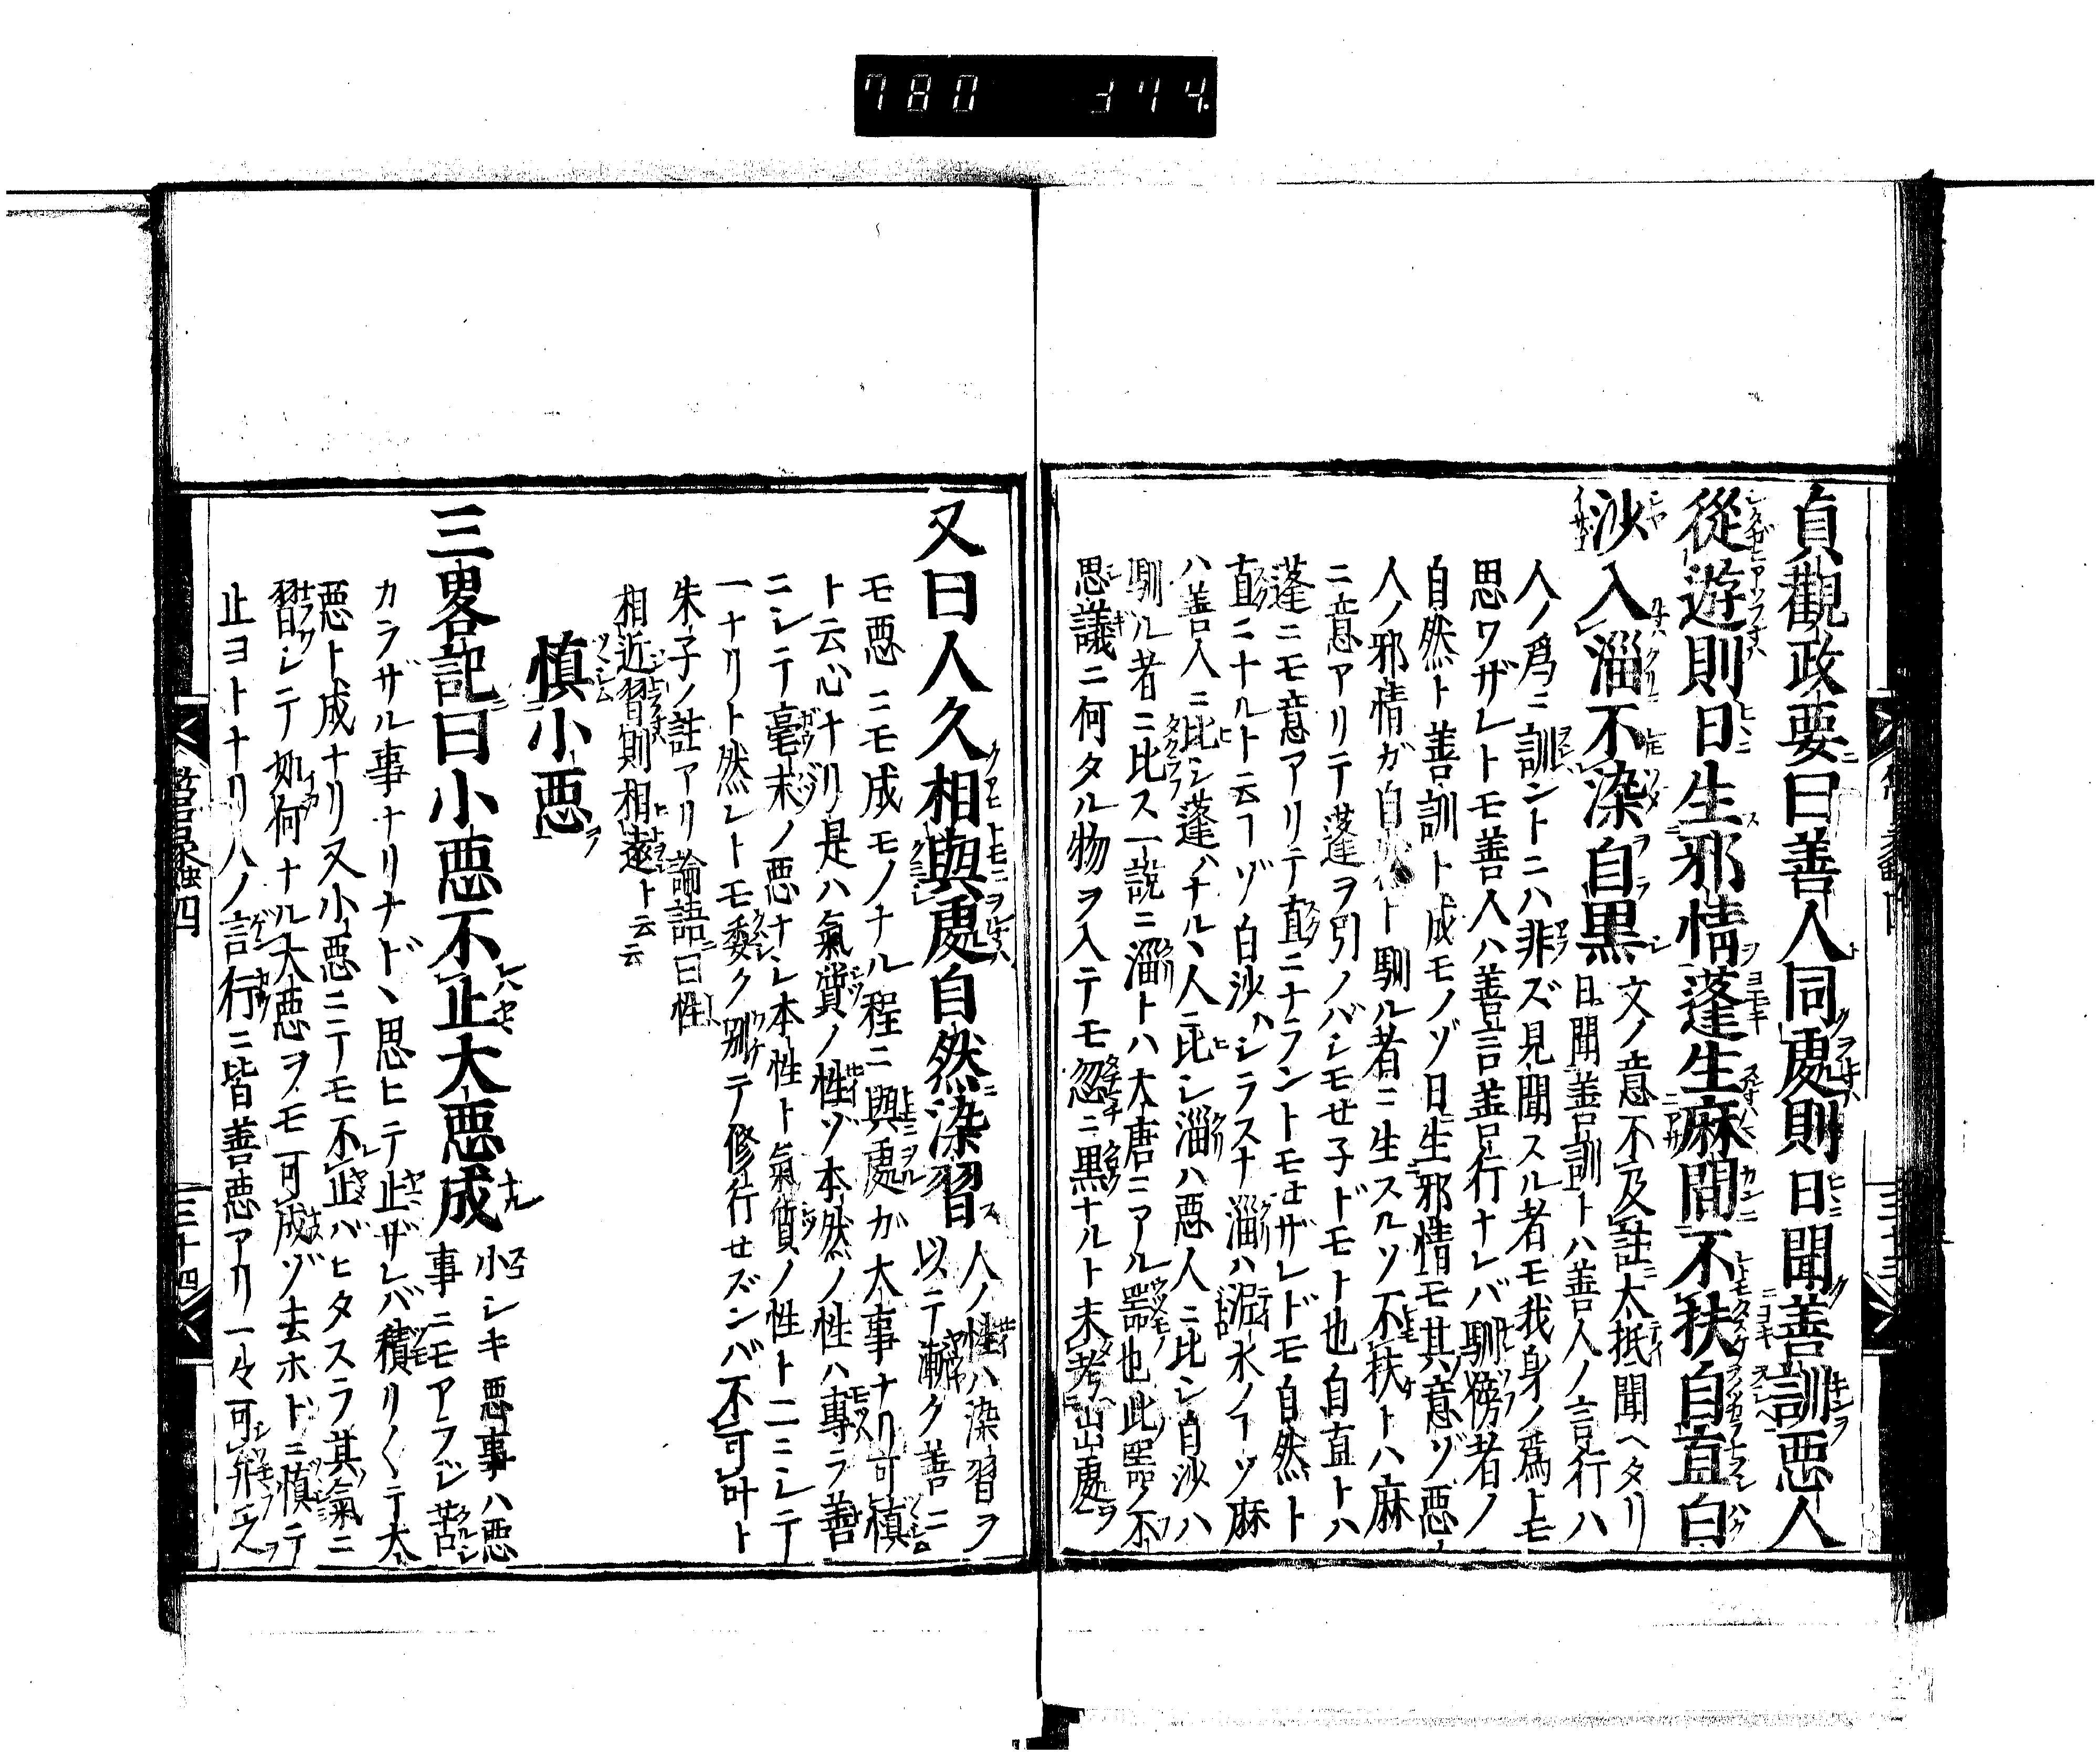 780 374
貞觀政要曰善人同處則日聞善訓惡人
從遊則日生邪情蓬生麻間不扶自直白
沙入淄不染自黒
文ノ意不及註ニ太抵聞ヘタリ
日聞善訓トハ善人ノ言行ハ
人ノ爲ニ訓ントニハ非ズ見聞スル者モ我身ノ爲トモ
思ワザレトモ善人ハ善言善行ナレバ馴傍者ノ
自然ト善訓ト成モノゾ日生邪情モ其意ゾ惡
人ノ邪情ガ自然ト馴ル者ニ生スルソ不扶トハ麻
ニ意アリテ蓬ヲ引ノバシモせ子ドモト也自直トハ
蓬ニモ意アリテ直ニナラントモせザレドモ自然ト
直ニナルト云ヿゾ白沙ハシラスナ淄ハ泥水ノヿゾ麻
ハ善人ニ比シ蓬ハナルヽ人ニ比シ淄ハ惡人ニ比シ白沙ハ
馴ル者ニ比ス一說ニ淄トハ大唐ニアル噐也此噐ノ不
思議ニ何タル物ヲ入テモ忽ニ黒ナルト未考出處ヲ
又曰人久相與處自然染習
人ノ性ハ染習ヲ
以テ漸ク善ニ
モ惡ニモ成モノナル程ニ與處ガ大事ナリ可愼
ト云心ナリ是ハ氣質ノ性ゾ本然ノ性ハ專ラ善
ニシテ毫末ノ惡ナシ本性ト氣質ノ性ト二ニシテ
一ナリト然レトモ委ク別テ修行せズンバ不可叶ト
朱子ノ註アリ論語曰性
相近習則相遠ト云云
愼小惡
三畧記曰小惡不止大惡成
小シキ惡事ハ惡
事ニモアラジ苦
カラザル事ナリナドヽ思ヒテ止ザレバ積リ〱テ大
惡ト成ナリ又小惡ニテモ不止バヒタスラ其氣ニ
習シテ如何ナル大惡ヲモ可成ゾ去ホトニ愼テ
止ヨトナリ人ノ言行ニ皆善惡アリ一々可辨之
三十四